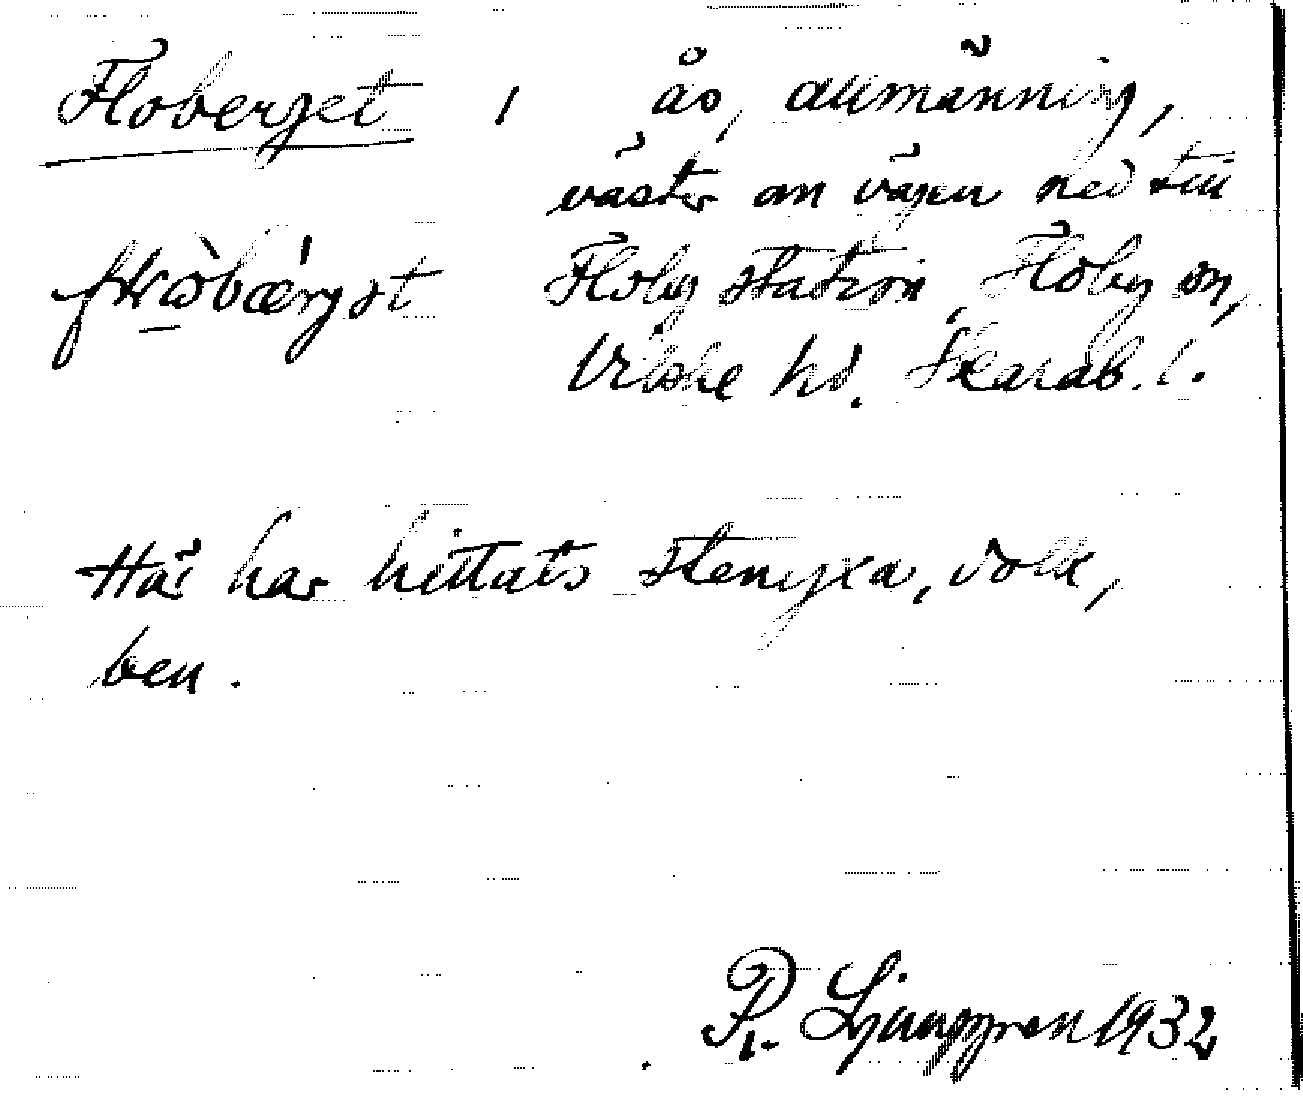 Floberget 1 ås, allmänning,
väster om vägen ned till
Floby station, Floby sn,
Vilske hd. Skarab. l.
Här har hittats stenyxa, dolk,
ben.
R. Ljunggren 1932